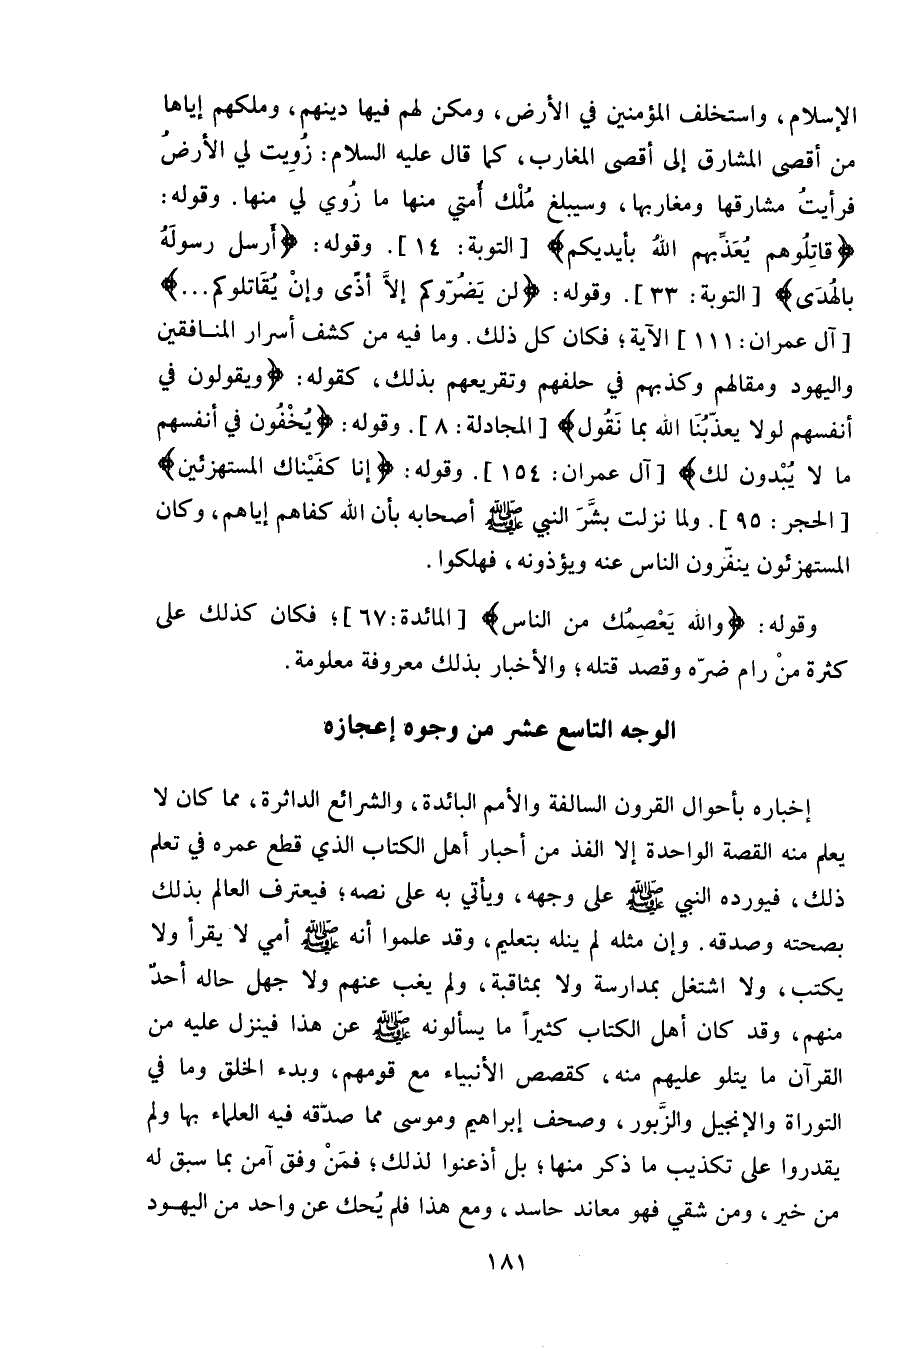 الإسلام، واستخلف المؤمنين في الأرض، ومكن لهم فيها دينهم، وملكهم إياها
من أقصى المشارق إلى أقصى المغارب، كما قال عليه السلام: زُوِيت لي الأرضُ
فرأيتُ مشارقها ومغاربها، وسيبلغ مُلْك أُمتي منها ما زُوي لي منها. وقوله:
﴿قاتِلُوهم يُعَذِّبهم اللهُ بأيديكم﴾ [التوبة: ١٤]. وقوله: ﴿أَرسل رسولَهُ
بالهُدَى﴾ [التوبة: ٣٣]. وقوله: ﴿لن يَضُرّوكم إلاَّ أذًى وإنْ يُقَاتلوكم...﴾
[آل عمران: ١١١] الآية؛ فكان كل ذلك. وما فيه من كشف أسرار المنافقين
واليهود ومقالهم وكذبهم في حلفهم وتقريعهم بذلك، كقوله: ﴿ويقولون في
أنفسهم لولا يعذّبُنَا الله بما نَقُول﴾ [المجادلة: ٨]. وقوله: ﴿يُخْفُون في أنفسهم
ما لا يُبْدون لك﴾ [آل عمران: ١٥٤]. وقوله: ﴿إنا كفَيْناك المستهزئين﴾
[الحجر: ٩٥]. ولما نزلت بشَّرَ النبي ﷺ أصحابه بأن الله كفاهم إياهم، وكان
المستهزئون ينفّرون الناس عنه ويؤذونه، فهلكوا.
وقوله: ﴿والله يَعْصِمُك من الناس﴾ [المائدة: ٦٧]؛ فكان كذلك على
كثرة منْ رام ضرّه وقصد قتله؛ والأخبار بذلك معروفة معلومة.
الوجه التاسع عشر من وجوه إعجازه
إخباره بأحوال القرون السالفة والأمم البائدة، والشرائع الداثرة، مما كان لا
يعلم منه القصة الواحدة إلا الفذ من أحبار أهل الكتاب الذي قطع عمره في تعلم
ذلك، فيورده النبي ﷺ على وجهه، ويأتي به على نصه؛ فيعترف العالم بذلك
بصحته وصدقه. وإن مثله لم ينله بتعليم، وقد علموا أنه ﷺ أمي لا يقرأ ولا
يكتب، ولا اشتغل بمدارسة ولا بمثاقبة، ولم يغب عنهم ولا جهل حاله أحدٌ
منهم، وقد كان أهل الكتاب كثيراً ما يسألونه ﷺ عن هذا فينزل عليه من
القرآن ما يتلو عليهم منه، كقصص الأنبياء مع قومهم، وبدء الخلق وما في
التوراة والإنجيل والزَّبور، وصحف إبراهيم وموسى مما صدّقه فيه العلماء بها ولم
يقدروا على تكذيب ما ذكر منها؛ بل أذعنوا لذلك؛ فمَنْ وفق آمن بما سبق له
من خير، ومن شقي فهو معاند حاسد، ومع هذا فلم يُحك عن واحد من اليهود
١٨١